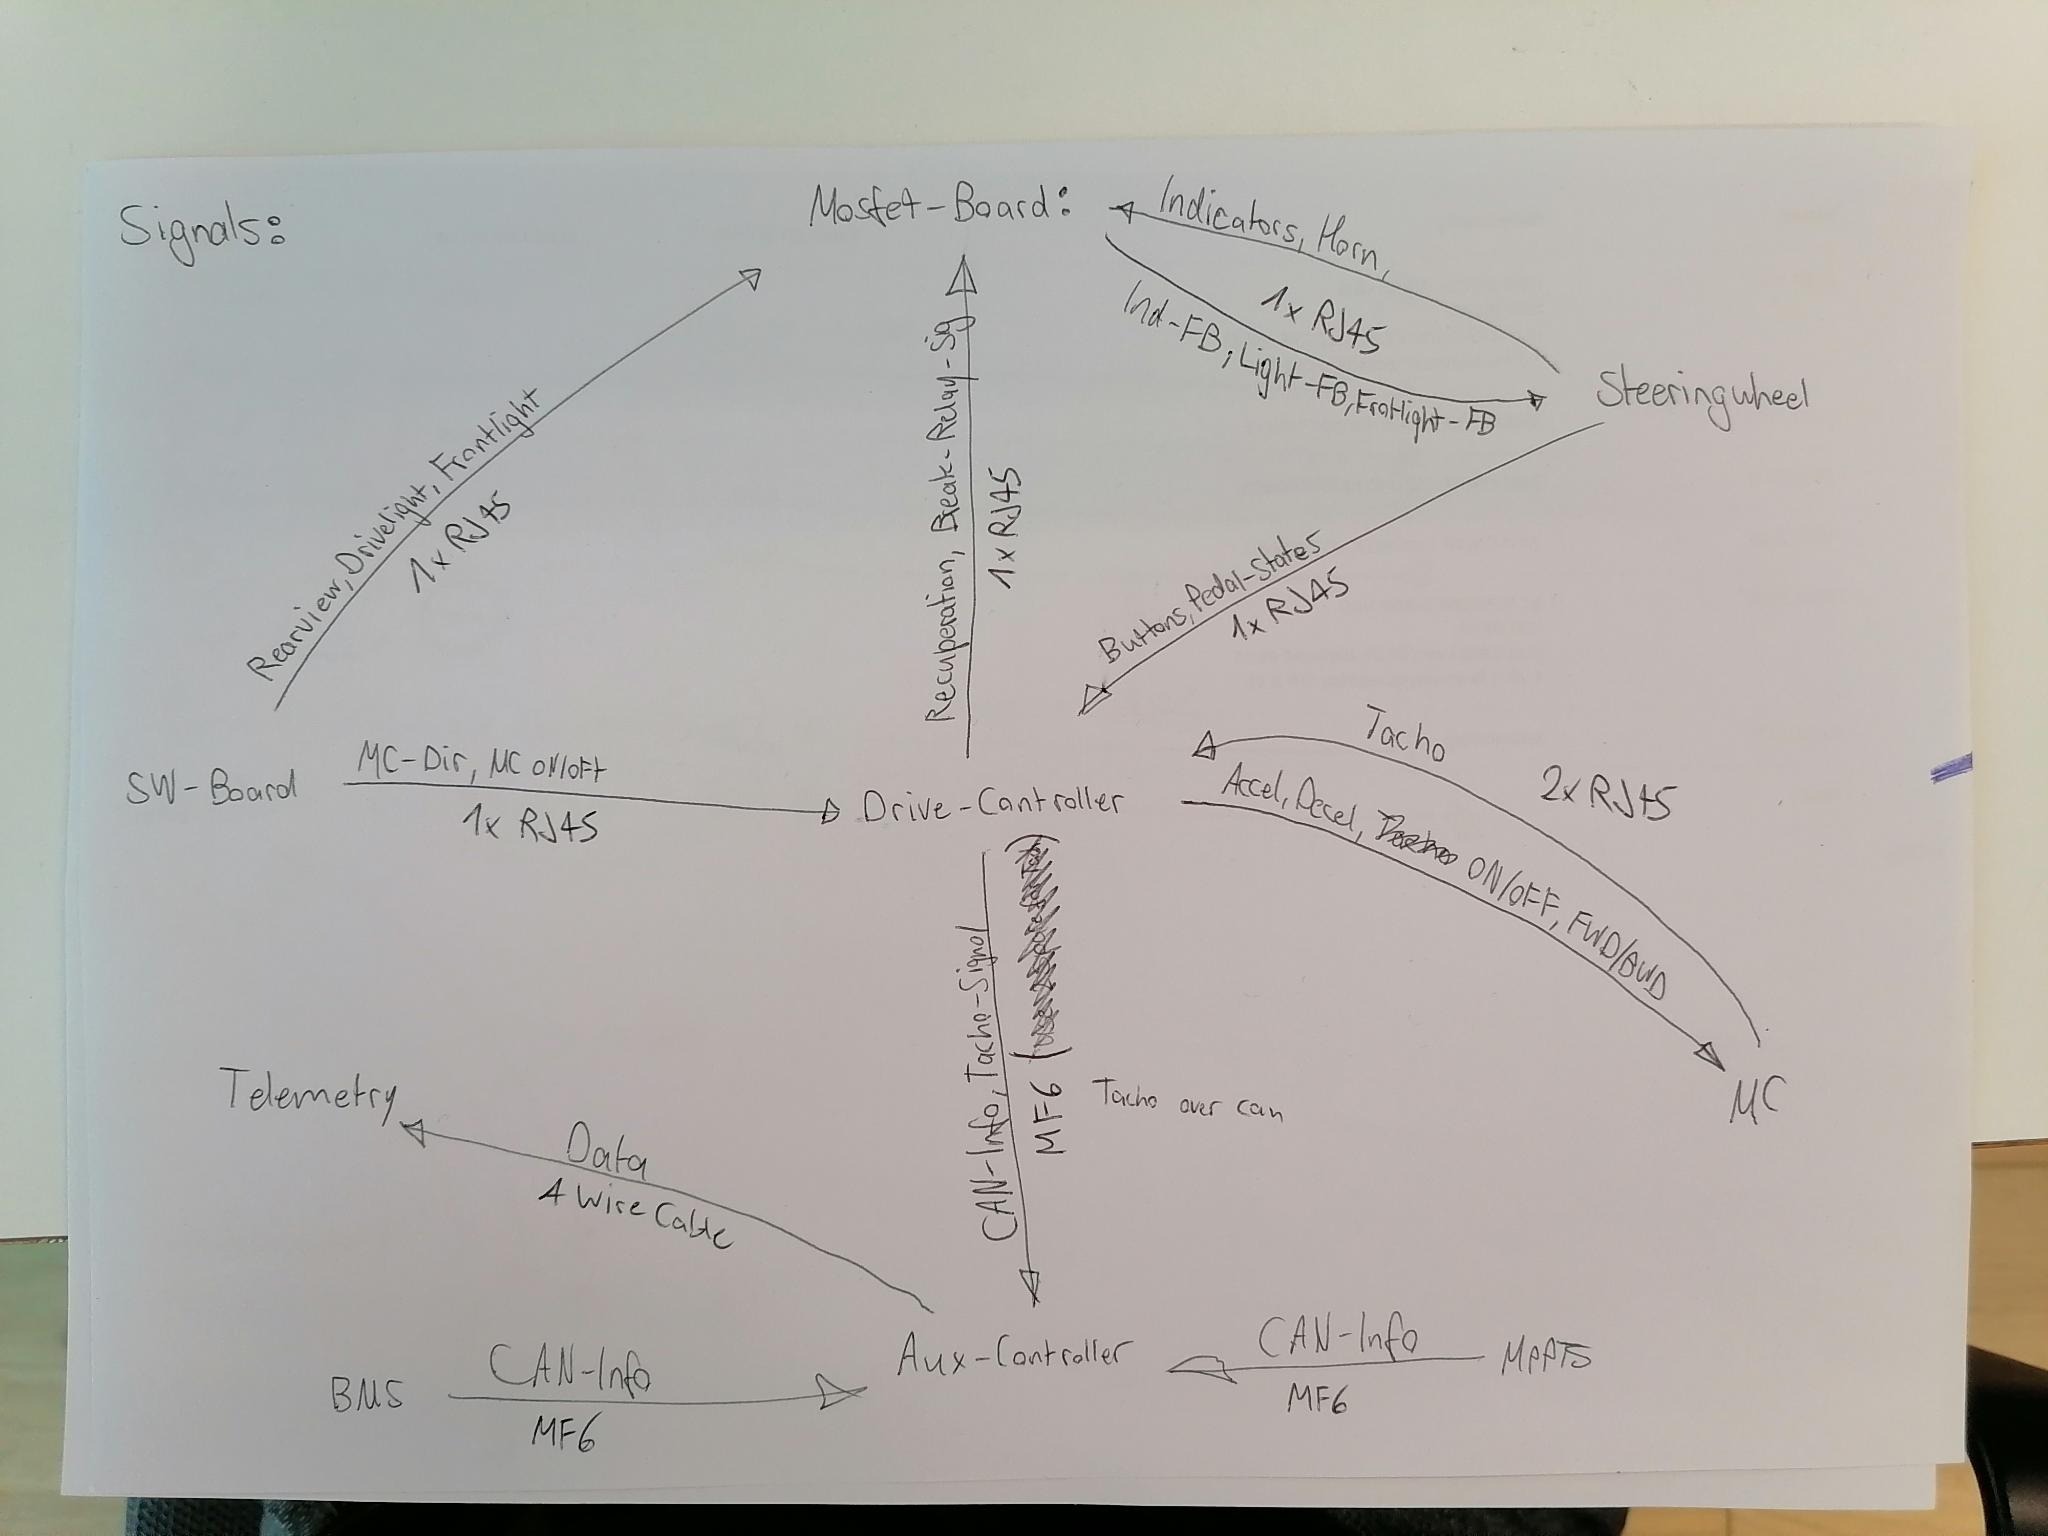 Signals:
Mosfet-Board:
Indicators, Horn,
1x RJ45
Ind-FB, Light-FB, Frotlight-FB
Steeringwheel
Rearview, Drivelight, Frontlight
1x RJ45
Recuperation, Break-Relay-Sig
1x RJ45
Buttons, Pedal-States
1x RJ45
SW-Board
MC-Dir, MC ON/OFF
1x RJ45
Drive-Controller
Tacho
2x RJ45
Accel, Decel, ON/OFF, FWD/BWD
MC
CAN-Info, Tacho-Signal
MF6
Tacho over can
Telemetry
Data
4 Wire Cable
BMS
CAN-Info
MF6
Aux-Controller
CAN-Info
MF6
MPPTS